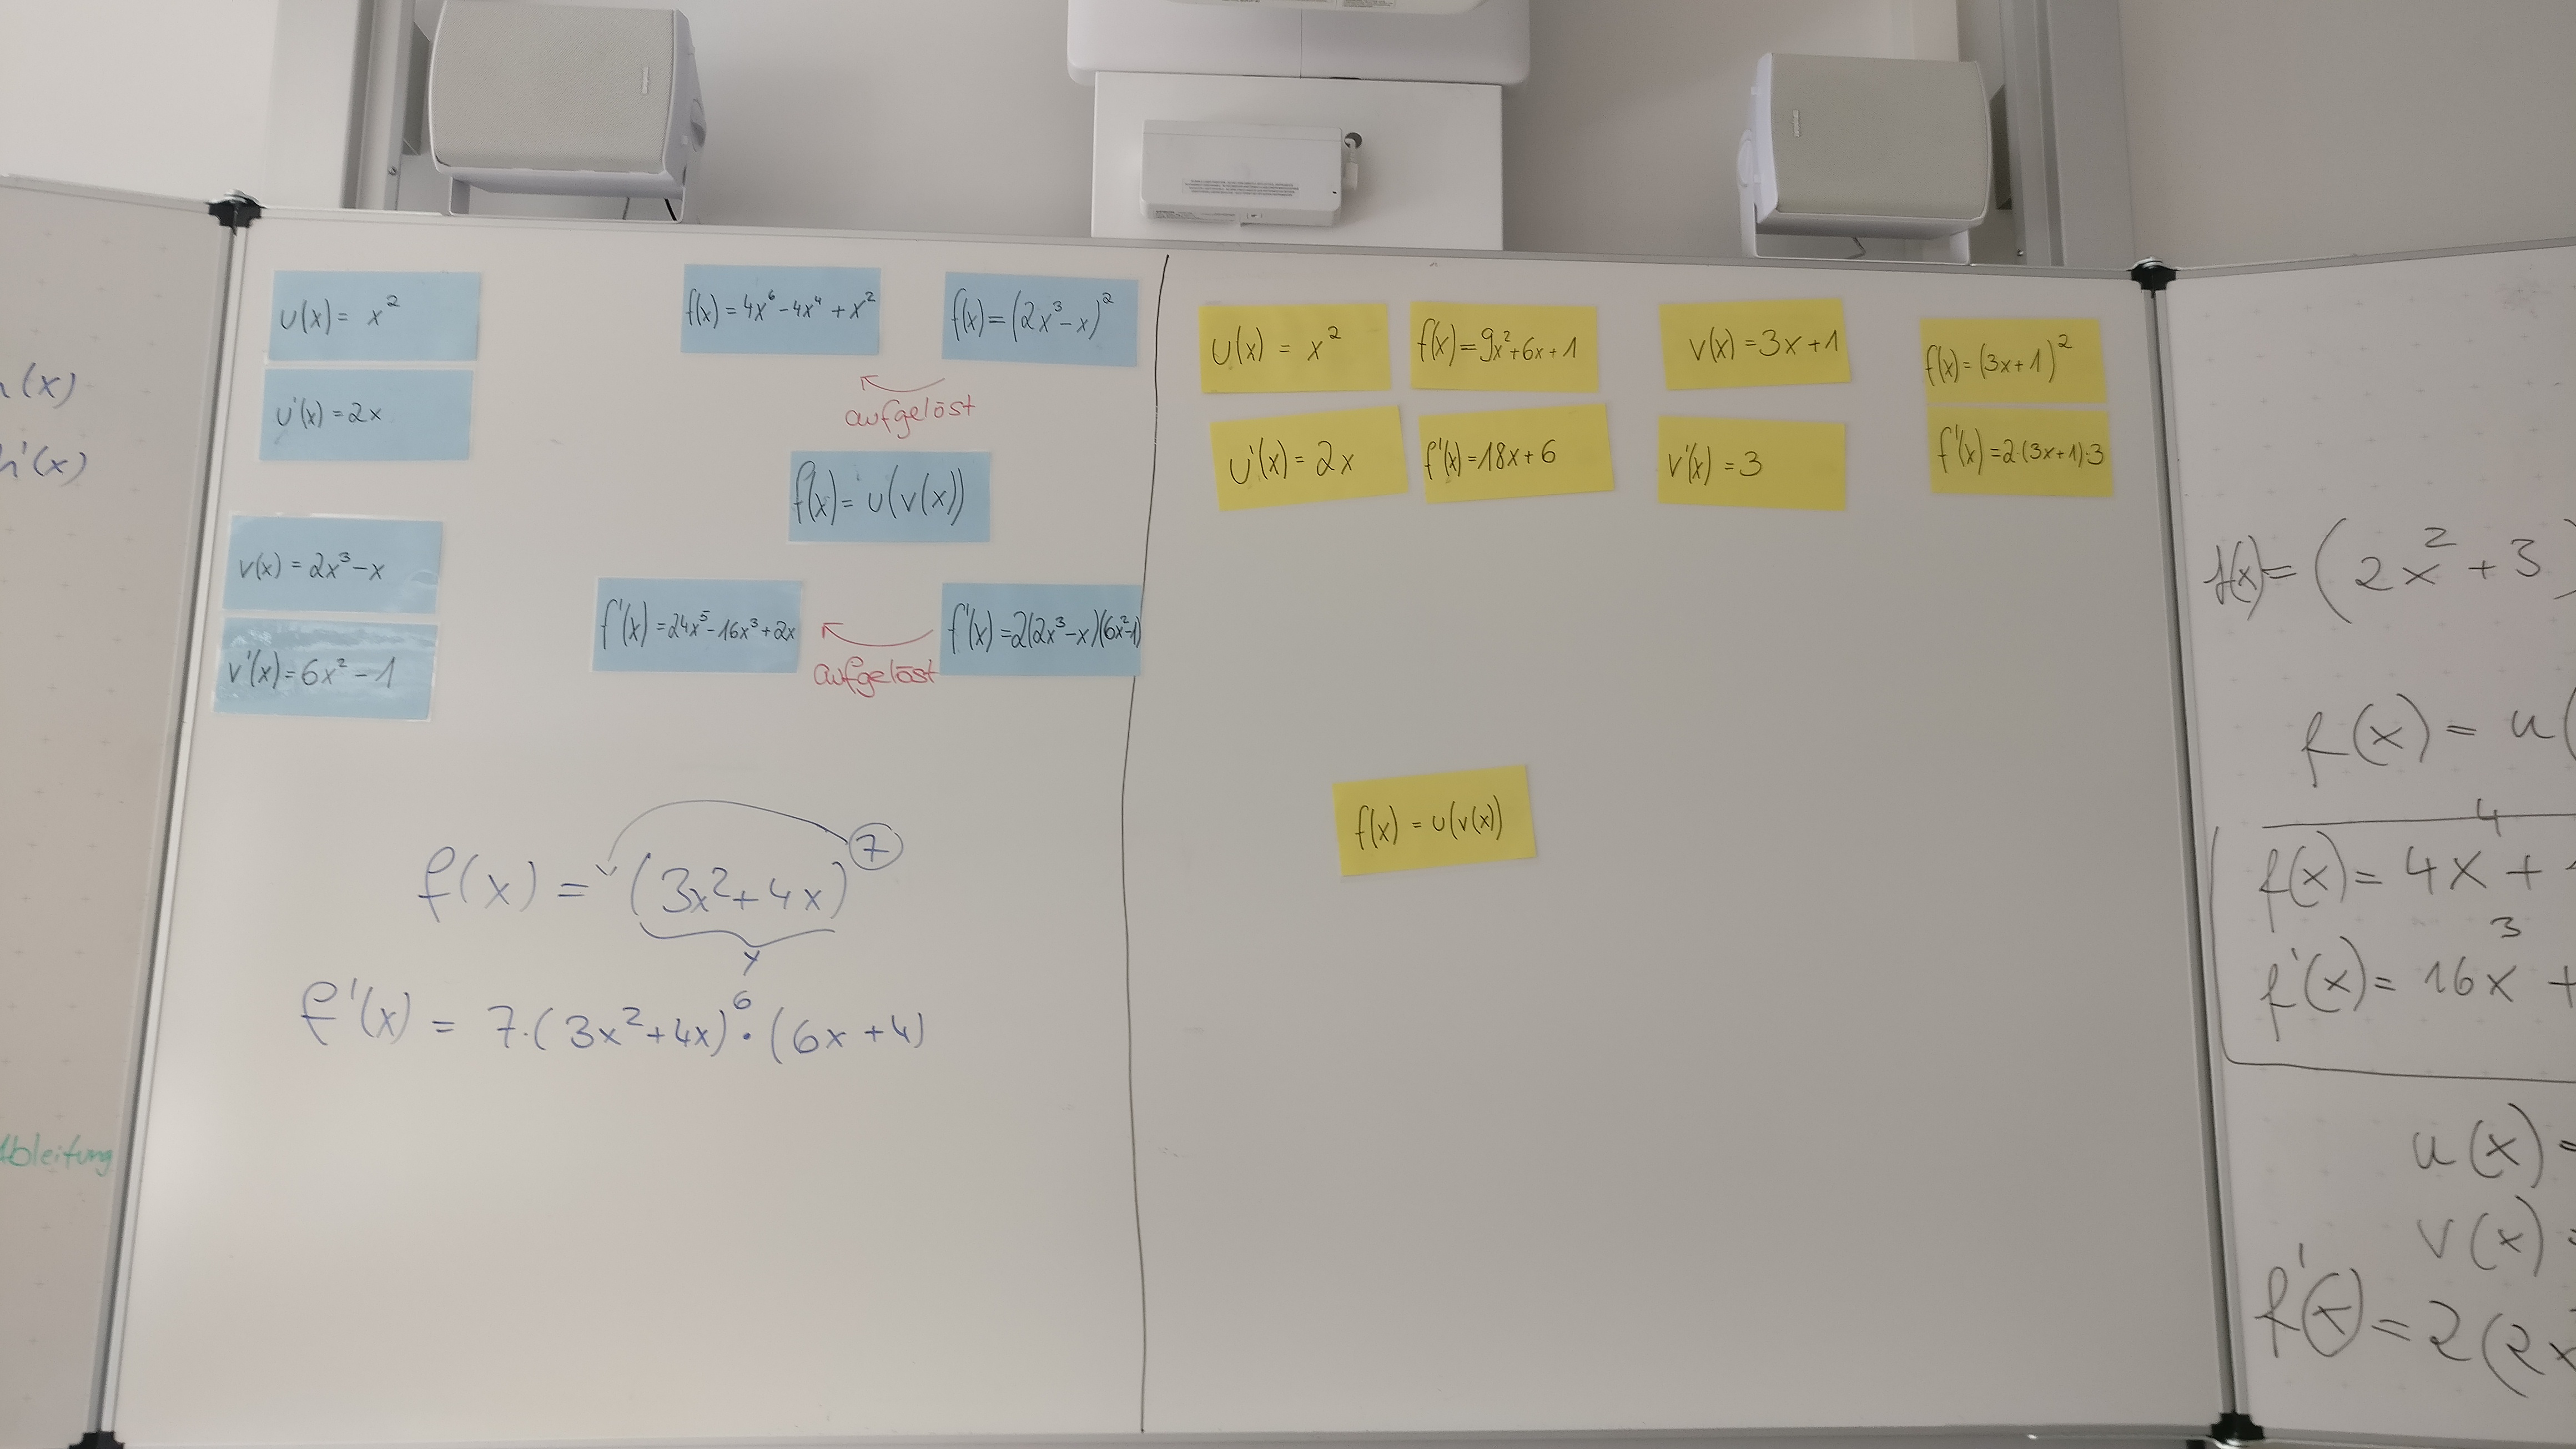 h(x)
h'(x)
Ableitung
u(x) = x²
u'(x) = 2x
v(x) = 2x³-x
v'(x) = 6x² - 1
f(x) = 4x⁶ - 4x⁴ + x²
f(x) = (2x³-x)²
aufgelöst
f(x) = u(v(x))
f'(x) = 24x⁵ - 16x³ + 2x
f'(x) = 2(2x³-x)(6x²-1)
aufgelöst
f(x) = (3x²+4x)⁷
f'(x) = 7·(3x²+4x)⁶·(6x+4)
u(x) = x²
f(x) = 9x²+6x+1
v(x) = 3x+1
f(x) = (3x+1)²
u'(x) = 2x
f'(x) = 18x+6
v'(x) = 3
f'(x) = 2·(3x+1)·3
f(x) = u(v(x))
f(x) = (2x² + 3)
f(x) = u(
f(x) = 4x⁴ +
f'(x) = 16x³ +
u(x) =
v(x) =
f'(x) = 2(2x